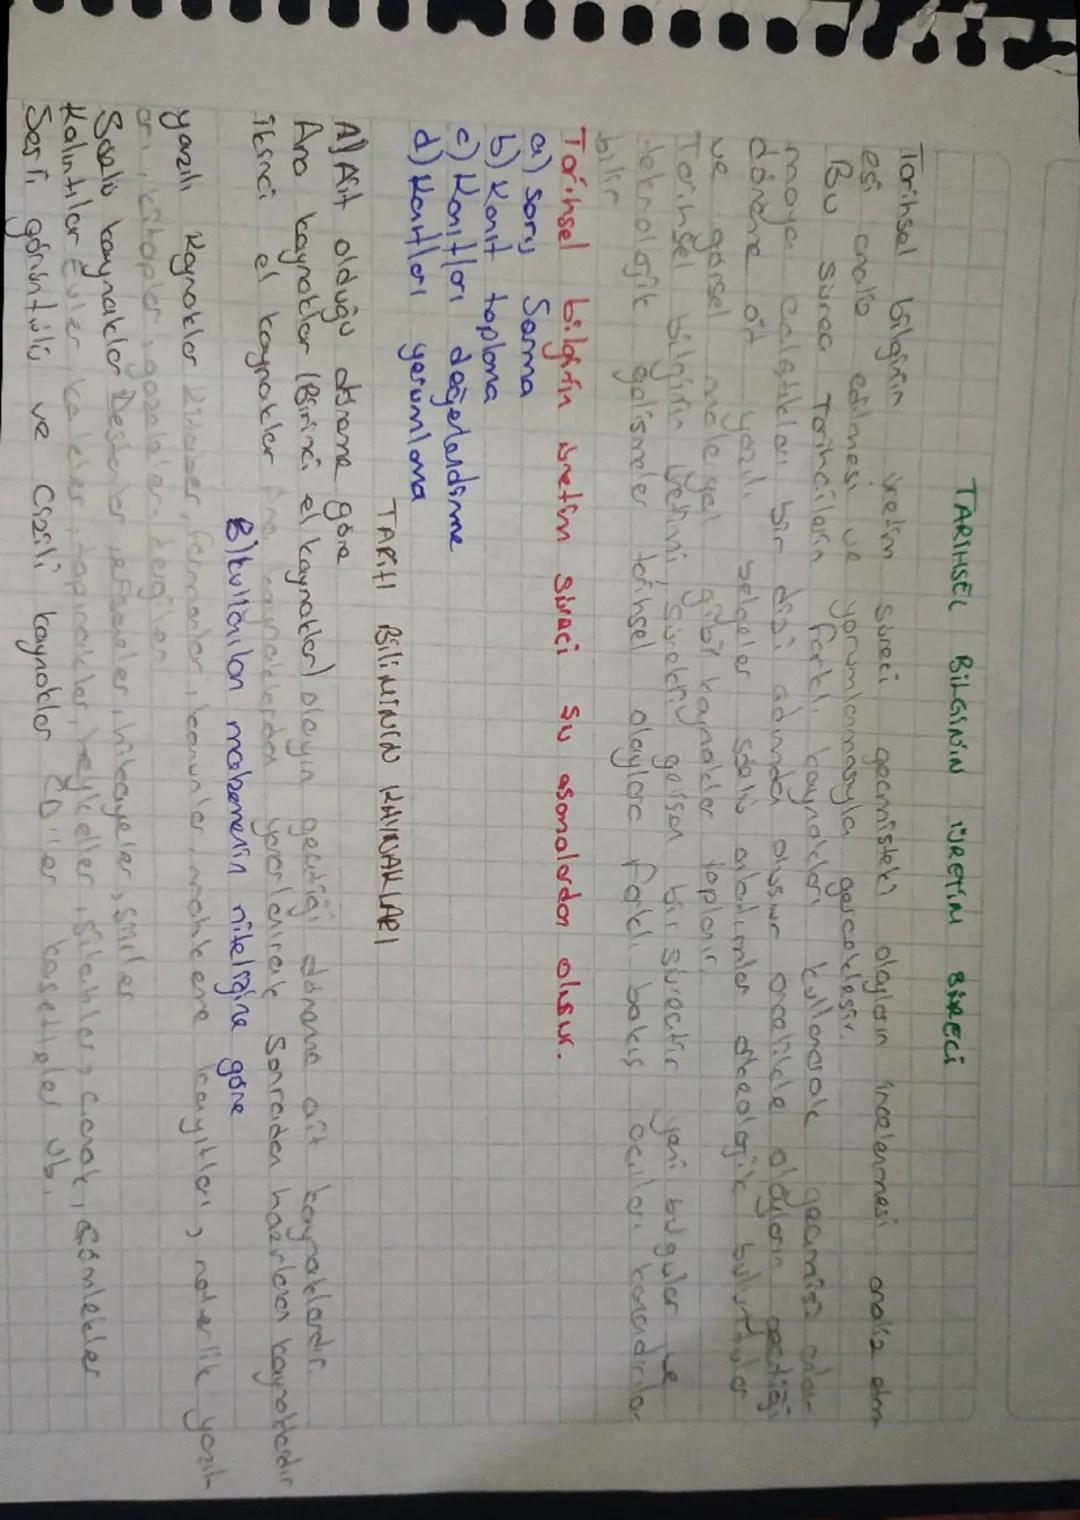 TARİHSEL BİLGİNİN ÜRETİM SÜRECİ
Tarihsel bilginin üretim süreci geçmişteki olayların incelenmesi analiz edilm
esi analiz edilmesi ve yorumlanmasıyla gerçekleşir.
Bu süreç Tarihçilerin farklı kaynakları kullanarak geçmişi anla-
maya çalıştıkları bir dizi adımdan oluşur öncelikle olayların geçtiği
döneme ait yazılı belgeler sözlü anlatımlar arkeolojik buluntular
ve görsel materyal gibi kaynaklar toplanır.
Tarihsel bilginin üretimi sürekli gelişen bir süreçtir yeni bulgular ve
teknolojik gelişmeler tarihsel olaylara farklı bakış açıları kazandırıla
bilir
Tarihsel bilginin üretim süreci şu aşamalardan oluşur.
a) soru Sorma
b) Kanıt toplama
c) Kanıtları değerlendirme
d) Kanıtları yorumlama
TARİH BİLİMİNİN KAYNAKLARI
A) Ait olduğu döneme göre
Ana kaynaklar (Birinci el kaynaklar) olayın geçtiği döneme ait kaynaklardır.
ikinci el kaynaklar Ana kaynaklardan yararlanılarak Sonradan hazırlanan kaynaklardır
B) kullanılan malzemenin niteliğine göre
yazılı Kaynaklar Kitabeler fermanlar, kanunlar, mahkeme kayıtları, noterlik yazıl-
arı, kitaplar, gazeteler, dergiler
Sözlü kaynaklar Destanlar, efsaneler, hikayeler, şiirler
Kalıntılar Evler, kaleler, tapınaklar, heykeller, silahlar, çanak, çömlekler
Sesli görüntülü ve Çizili kaynaklar CD'ler kasetleler vb.